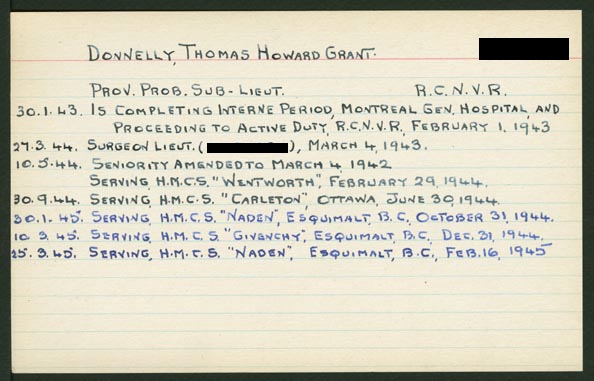 DONNELLY, THOMAS HOWARD GRANT.
PROV. PROB. SUB-LIEUT. R.C.N.V.R.
30.1.43. IS COMPLETING INTERNE PERIOD, MONTREAL GEN. HOSPITAL, AND
PROCEEDING TO ACTIVE DUTY, R.C.N.V.R, FEBRUARY 1, 1943
27.3.44. SURGEON LIEUT. ( ), MARCH 4, 1943.
10.5.44. SENIORITY AMENDED TO MARCH 4, 1942
SERVING, H.M.C.S. "WENTWORTH", FEBRUARY 29, 1944.
30.9.44. SERVING, H.M.C.S. "CARLETON", OTTAWA, JUNE 30, 1944.
30.1.45. SERVING, H.M.C.S. "NADEN", ESQUIMALT, B.C., OCTOBER 31, 1944.
10.3.45. SERVING, H.M.C.S. "GIVENCHY", ESQUIMALT, B.C., DEC. 31, 1944.
25.3.45. SERVING, H.M.C.S. "NADEN", ESQUIMALT, B.C., FEB. 16, 1945